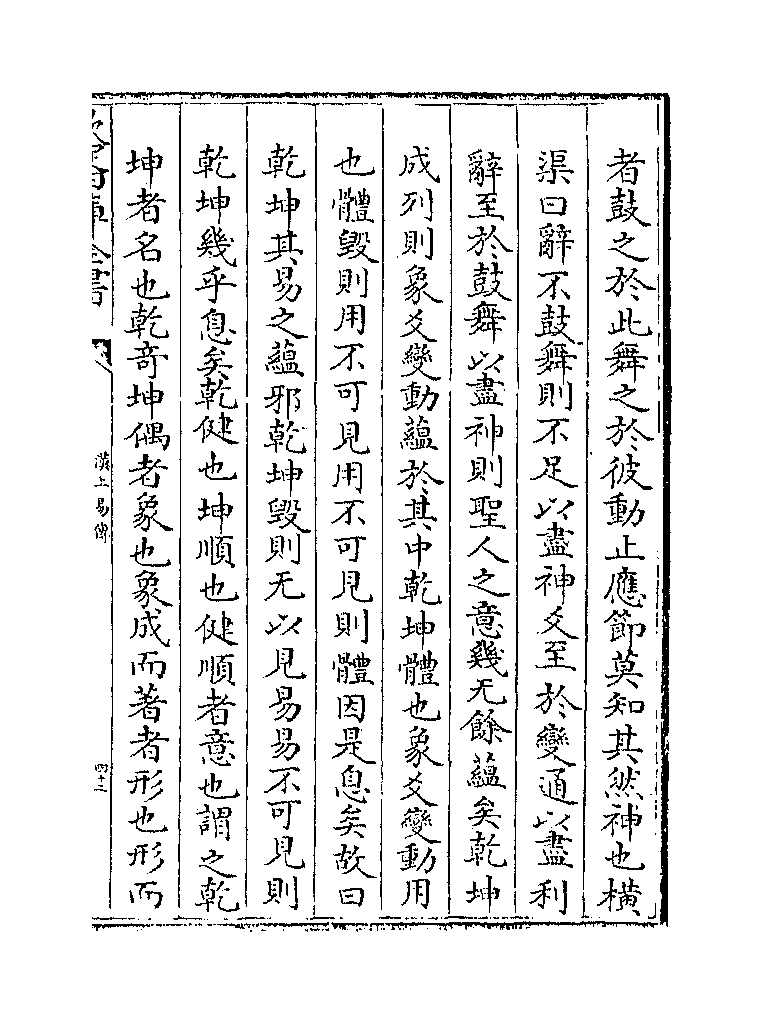 者鼓之於此舞之於彼動止應節莫知其然神也橫
渠曰辭不鼓舞則不足以盡神爻至於變通以盡利
辭至於鼓舞以盡神則聖人之意幾无餘蘊矣乾坤
成列則象爻變動蘊於其中乾坤體也象爻變動用
也體毀則用不可見用不可見則體因是息矣故曰
乾坤其易之蘊邪乾坤毀則无以見易易不可見則
乾坤幾乎息矣乾健也坤順也健順者意也謂之乾
坤者名也乾竒坤偶者象也象成而著者形也形而
欽定四庫全書
漢上易傳
四十三